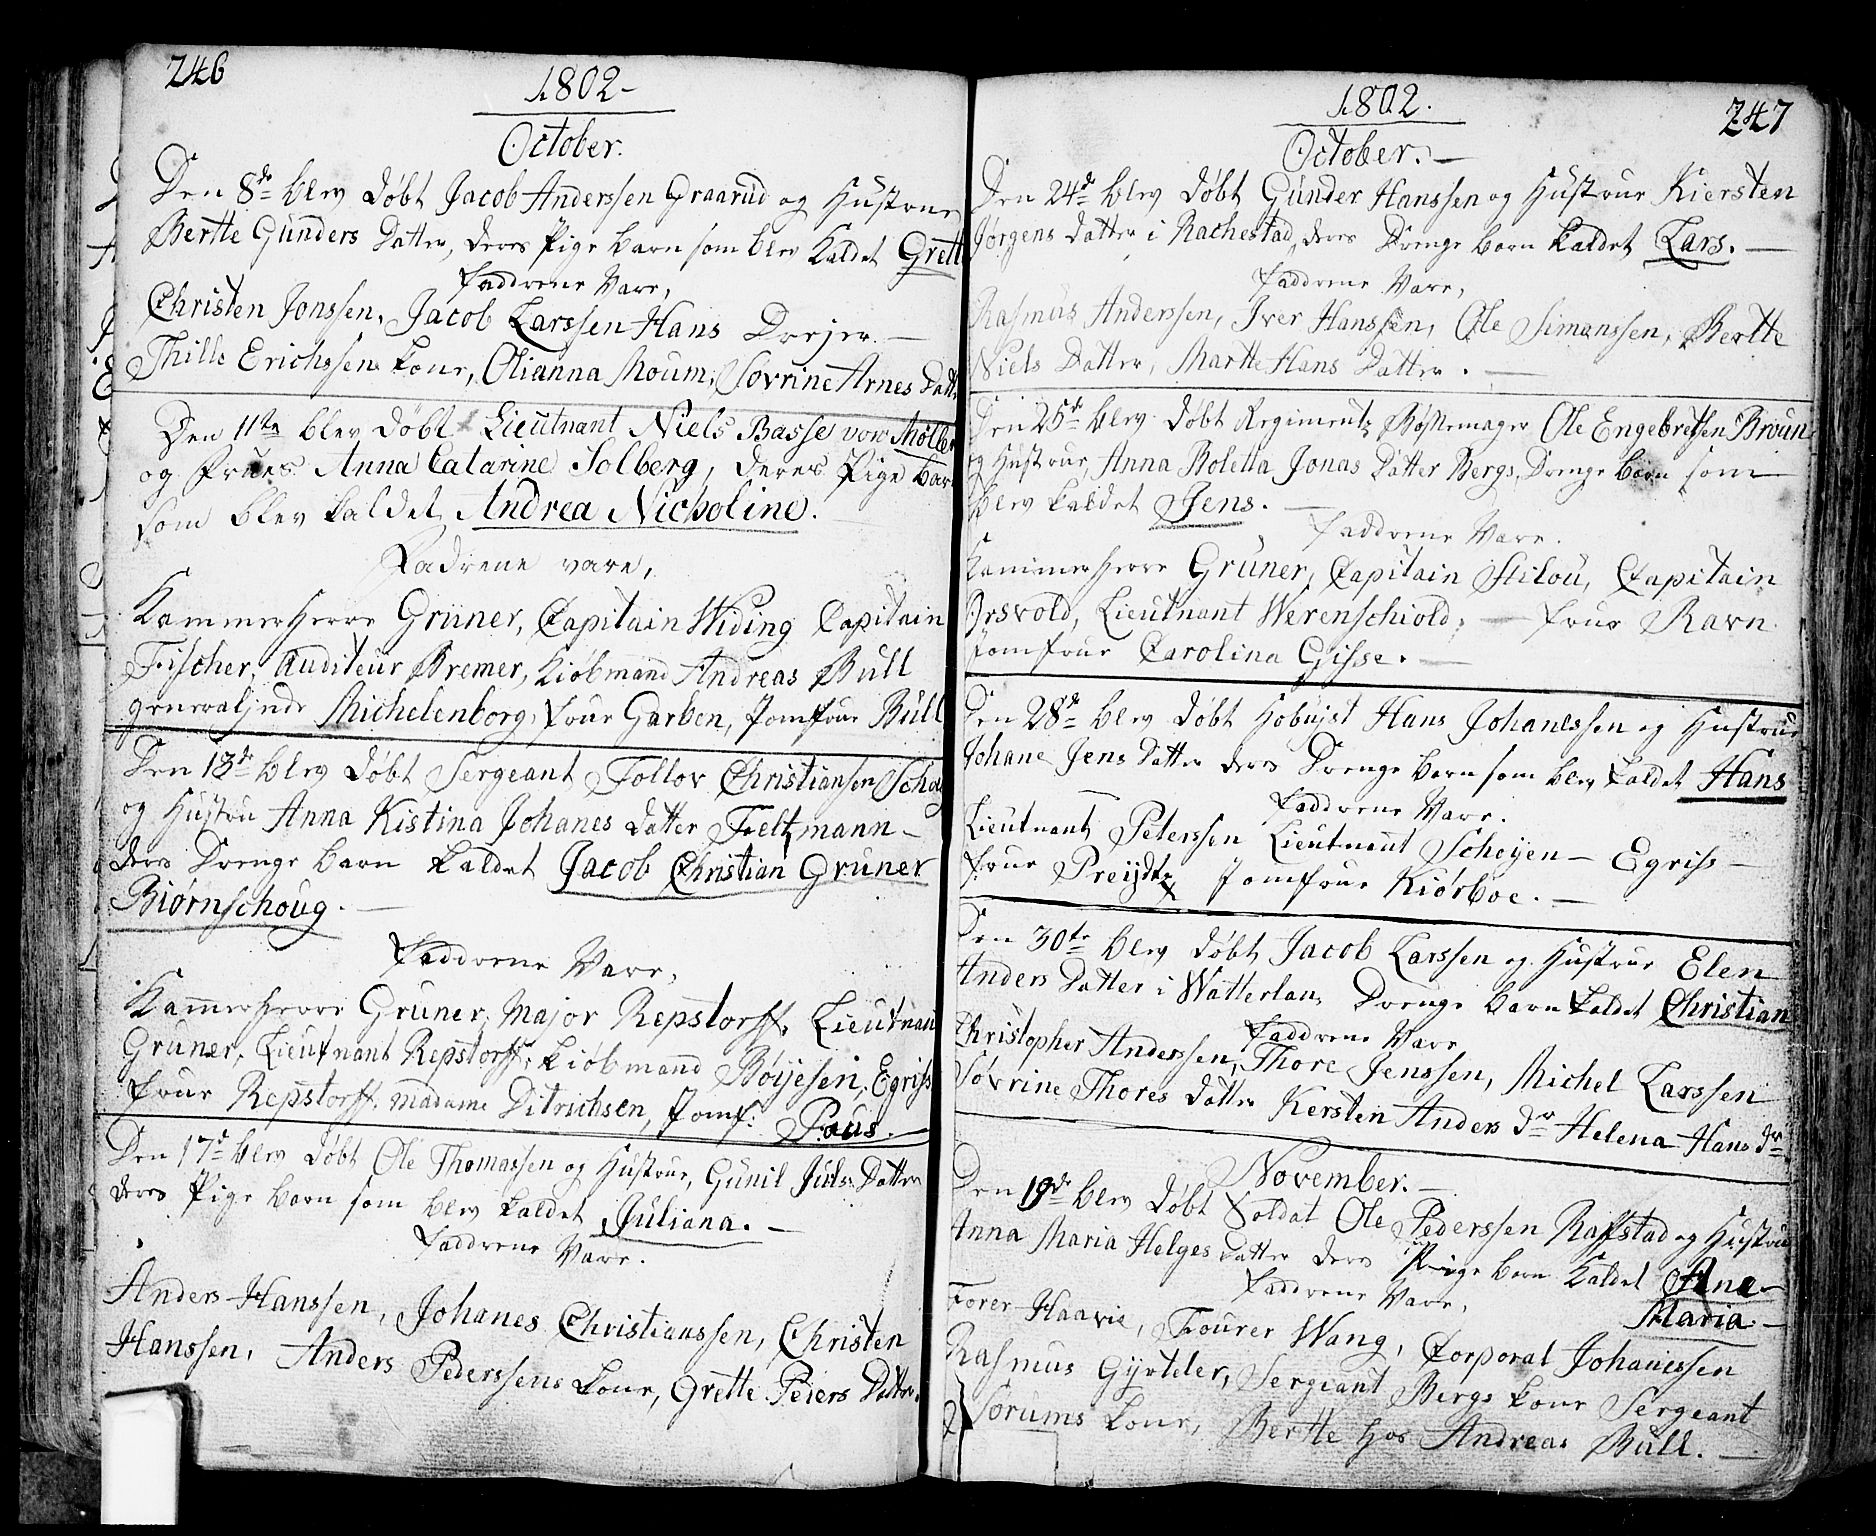 246
1802-
October.
Den 8de blev døbt Jacob Anderssen Graarud og Hustrue
Berthe Gunders Datter, deres Pige barn som blev kaldet Grett
Faddrene Vare,
Christen Jonssen, Jacob Larssen Hans Drejer -
Thille Erichssens kone, Olianna Moum, Sovrine Arnes Datt
Den 11te blev døbt Lieutnant Niels Basse von Møller
og Frues Anna Catarine Solberg, deres Pige bar
som blev kaldet Andrea Nicholine.
Fadrene vare,
Kammer Herre Gruner, Capitain Widing Capitain
Fischer, Auditeur Bremer, Kiøbmand Andreas Bull
generalinde Michelenborg, frue Garben, Jomfrue Bull
Den 13de blev døbt Sergeant Follov Christiansen Schou
og Hustru Anna Kistina Johanes datter Feltzmann -
deres Drenge barn kaldet Jacob Christian Gruner
Biørnschoug. -
Faddrene Vare,
Kamerherre Gruner, Major Repstorff, Lieutnan
Gruner, Lieutnant Repstorff, kiøbmand Bøijesen, Egriss
frue Repstorff. madame Ditrichsen, Jomf: Paus. -
Den 17de blev døbt Ole Thomassen og Hustrue, Gunil Juls Datter
deres Pige barn som blev kaldet Juliana. -
Faddrene Vare.
Anders Hanssen, Johanes Christianssen, Christen
Hanssen, Anders Pederssens kone, Grette Peiers Datter.
247
1802.
October. -
Den 24de blev døbt Gunder Hanssen og Hustrue Kiersten
Jørgens datter i Rachestad, deres Drenge barn kaldet Lars. -
Faddrene Vare,
Rasmus Anderssen, Iver Hanssen, Ole Simanssen, Bertte
Niels Datter, Martte Hans Datter. -
Den 25de blev døbt Regiments Bøssemager Ole Engebretsen Broun
og Hustrue, Anna Boletta Jonas Datter Bergs, Drenge barn som
blev kaldet Jens. -
Faddrene Vare.
Kammerherre Gruner, Capitain Stilou, Capitain
Orsvold, Lieutnant Werenschiold, - frue Ravn
Jomfrue Carolina Gisse. -
Den 28de blev døbt Hoboist Hans Johanessen og Hustrue
Johane Jens Datter deres Drenge barn som blev kaldet Hans
Faddrene Vare.
Lieutnant Peterssen Lieutnant Scheijen - Egriss -
frue Preijdtz Jomfrue Kiørboe. -
Den 30te blev døbt Jacob Larssen og Hustrue Elen
Anders Datter i Watterlan, Drenge barn kaldet Christian
Faddrene Vare
Christopher Anderssen, Thore Jenssen, Michel Larssen
Sovrine Thores datter Kersten Anders dr Helena Hans dr
November. -
Den 19de blev døbt Soldat Ole Pederssen Rafstad og Hustrue
Anna Maria Helges Datter deres Pige barn kaldet Ane -
Maria -
Faddrene Vare,
Forer Haavie, Fourer Wang, Corporal Johanessen
Rasmus Gyrteler, Sergeant Bergs kone Sergeant
Sorums kone, Bertte hos Andreas Bull. -